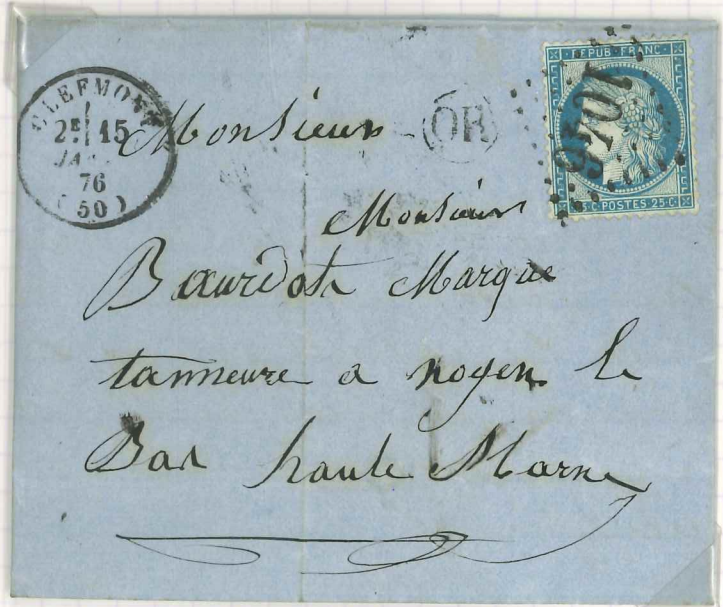 CLEFMONT
2E 15
JANV
76
(50)
OR
REPUB·FRANC·
1046
25·C·POSTES·25·C·
Monsieur
Monsieur
Bourdot Marque
tanneure a noyen le
Bas haute Marne